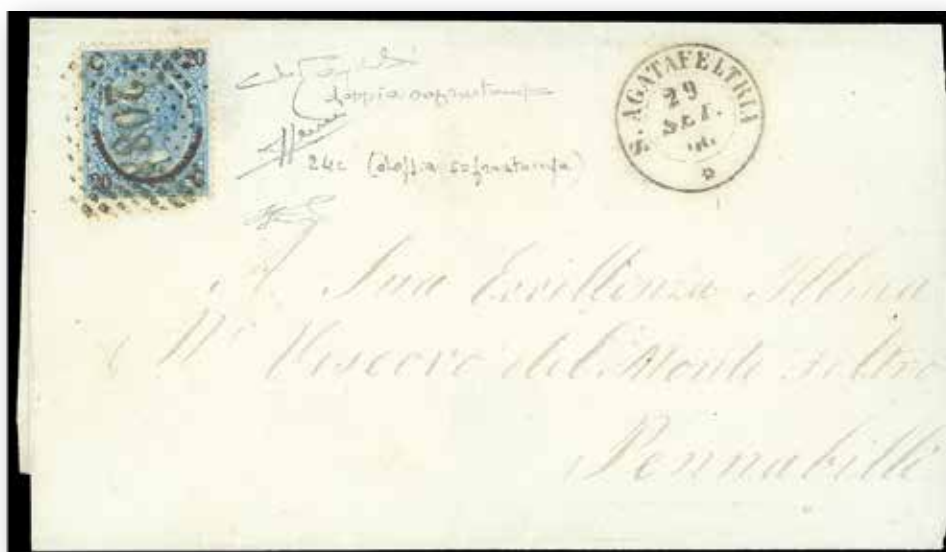 C 20
20 C
2087
doppia soprastampa
24c (doppia soprastampa)
S. AGATAFELTRIA
29
SET.
66.
A Sua Eccellenza Illma
Vescovo del Monte feltro
Pennabilli